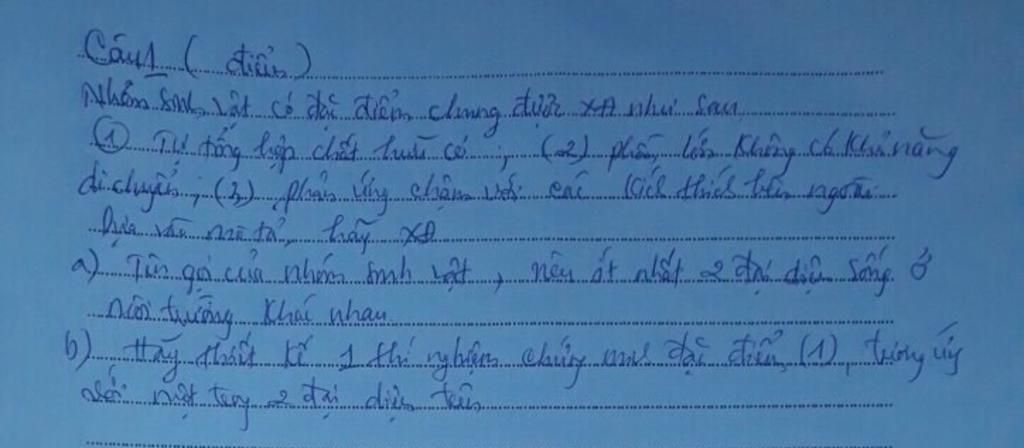 Câu 1 ( điểm)
Nhóm sinh vật có đặc điểm chung được XĐ như sau
(1) Tự tổng hợp chất hữu cơ ; (2) phần lớn không có khả năng
di chuyển ; (3) phản ứng chậm với các kích thích bên ngoài.
Dựa vào mô tả, hãy XĐ
a) Tên gọi của nhóm sinh vật, nêu ít nhất 2 đại diện sống ở
môi trường khác nhau.
b) Hãy thiết kế 1 thí nghiệm chứng minh đặc điểm (1), tương ứng
với một trong 2 đại diện trên